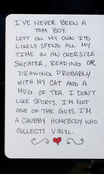 I'VE NEVER BEEN A
TOM BOY.
LEFT ON MY OWN I'D
LIKELY SPEND ALL MY
TIME IN AN OVERSIZE
SWEATER, READING OR
DRAWING PROBABLY
WITH MY CAT AND A
MUG OF TEA. I DON'T
LIKE SPORTS, I'M NOT
ONE OF THE GUYS. I'M
A CHUBBY HOMEBODY WHO
COLLECTS VINYL.